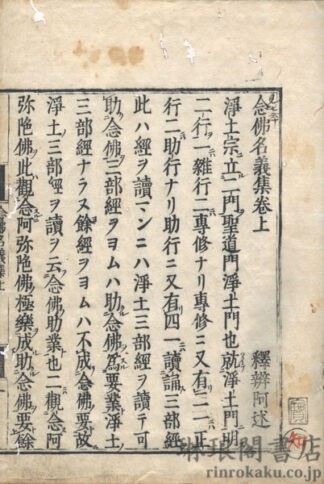 念佛名義集卷上
釋辨阿述
淨土宗立二門聖道門淨土門也就淨土門明
二行一雜行二專修ナリ專修ニ又有二一正
行二助行ナリ助行ニ又有四一讀誦三部經
此ハ經ヲ讀マンニハ淨土三部經ヲ讀テ可
助念佛三部經ヲヨムハ助念佛爲要業淨土
三部經ナラヌ餘經ヲヨムハ不成念佛要故
淨土三部經ヲ讀ヲ云念佛助業也二觀念阿
弥陁佛此觀念阿弥陁佛極樂成助念佛要餘
琳琅閣書店
rinrokaku.co.jp